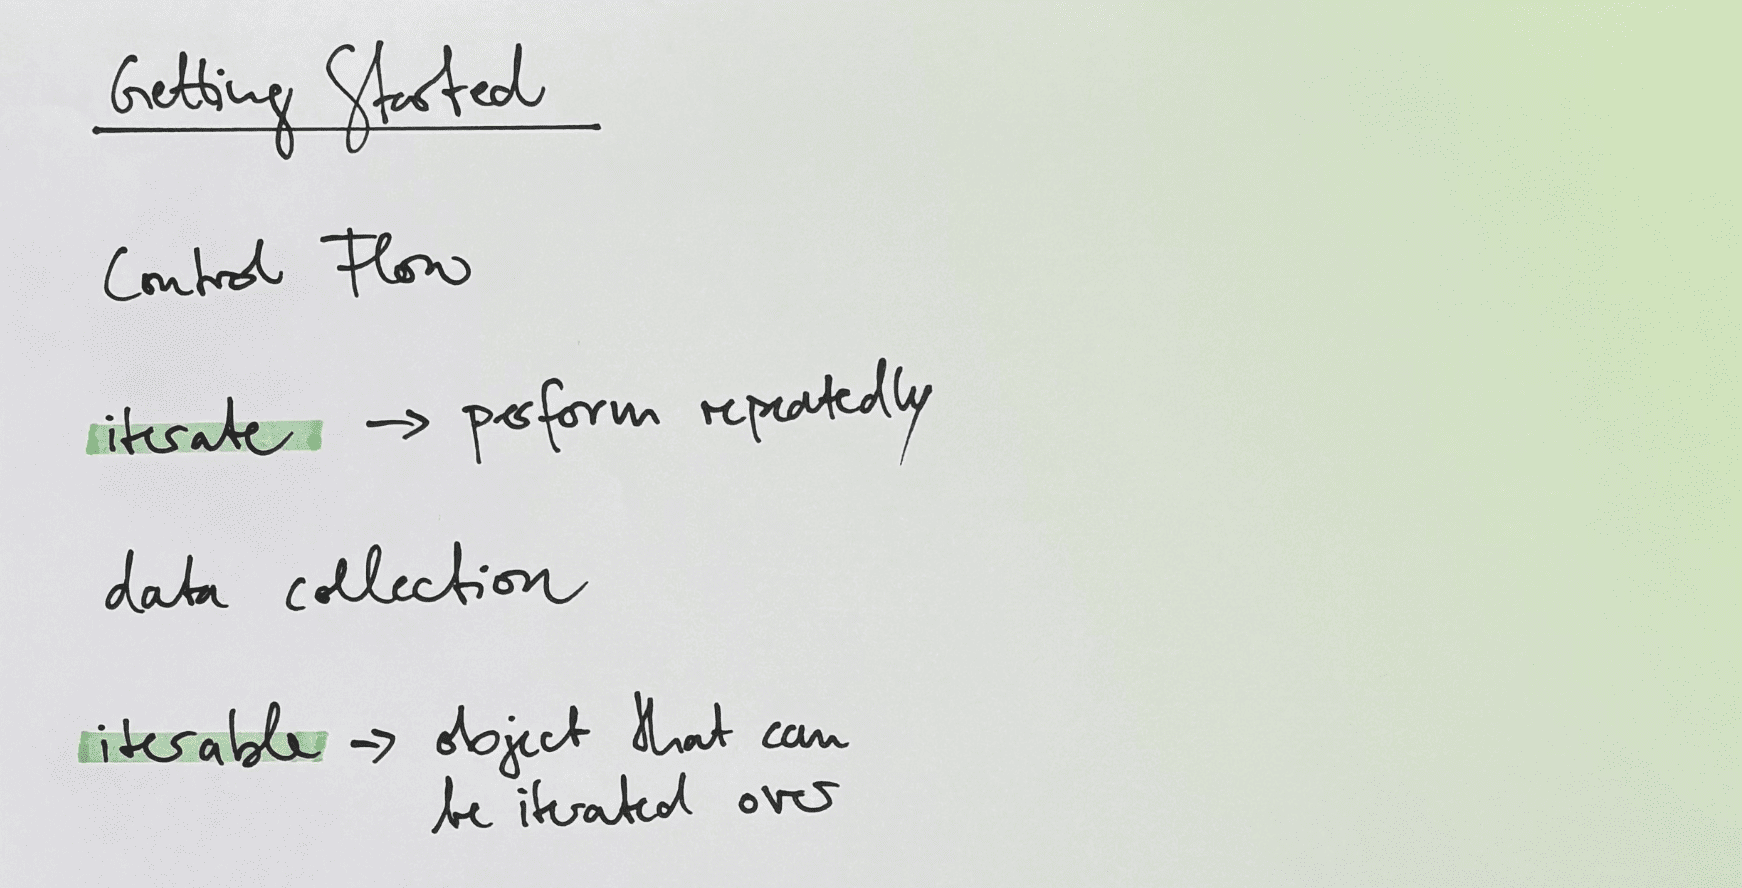 Getting Started
Control Flow
iterate → perform repeatedly
data collection
iterable → object that can
be iterated over